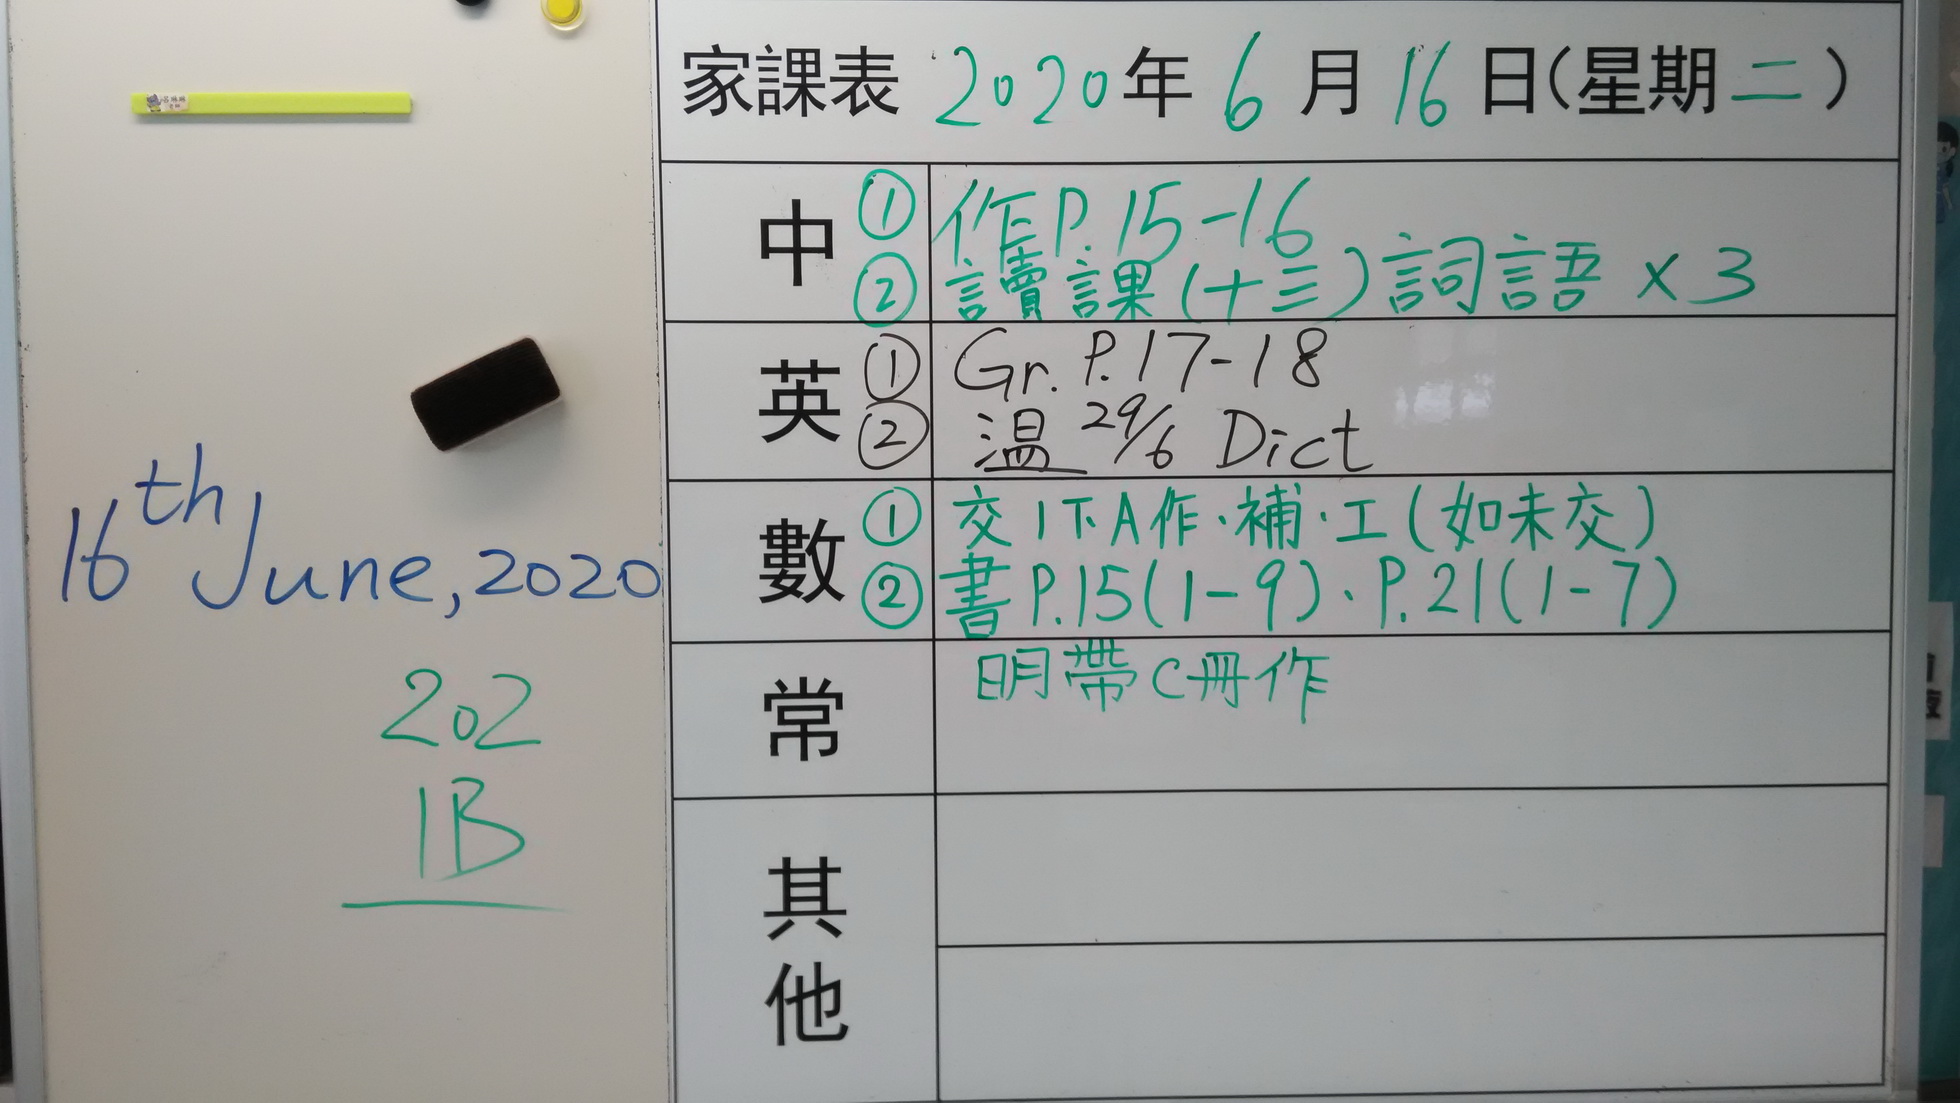 家課表 2020年6月16日(星期二)
中 ① 作P.15-16
② 讀課(十三)詞語 x 3
英 ① Gr. P.17-18
② 溫 29/6 Dict
數 ① 交1下A作、補、工(如未交)
② 書P.15(1-9)、P.21(1-7)
常 明帶C冊作
其他
16th June, 2020
202
1B